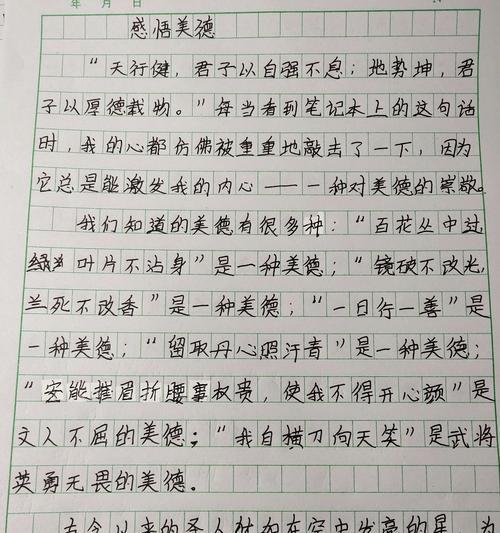 年 月 日
感悟美德
“天行健，君子以自强不息；地势坤，君
子以厚德载物。”每当看到笔记本上的这句话
时，我的心都仿佛被重重地敲击了一下，因为
它总是能激发我的内心——一种对美德的崇敬。
我们知道的美德有很多种：“百花丛中过
叶片不沾身”是一种美德；“镜破不改光，
兰死不改香”是一种美德；“一日行一善”是
一种美德；“留取丹心照汗音”是一种美德；
“安能摧眉折腰事权贵，使我不得开心颜”是
文人不屈的美德；“我自横刀向天笑”是武将
英勇无畏的美德。
古今以来的圣人就如在空中发亮的星，为